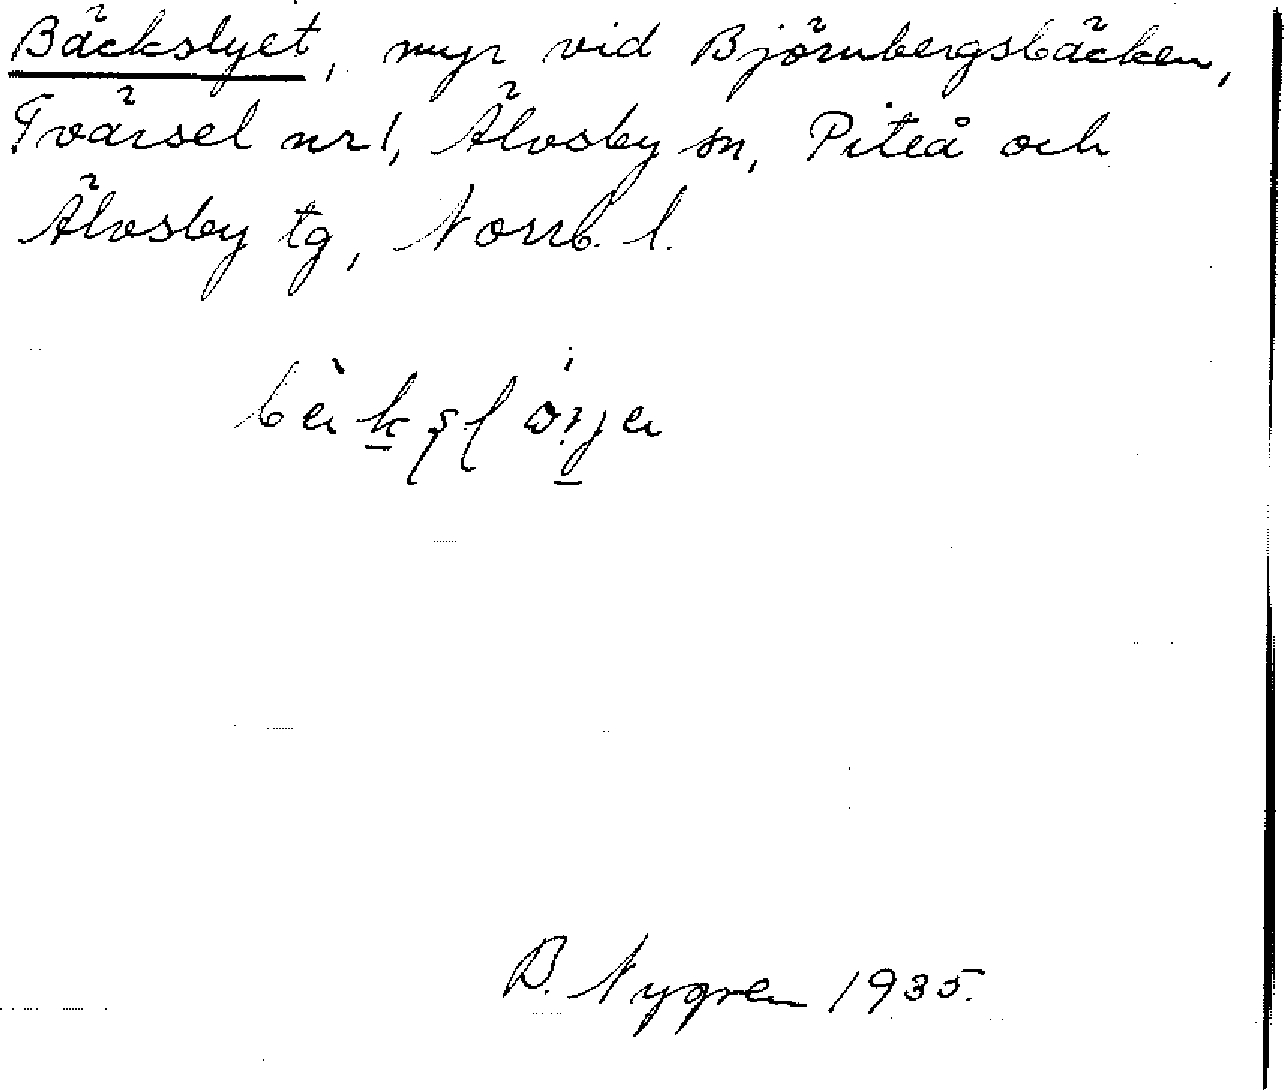 Bäckslyet, myr vid Björnbergsbäcken,
Tvärsel nr 1, Älvsby sn, Piteå och
Älvsby tg, Norrb. l.
B. Nygren 1935.